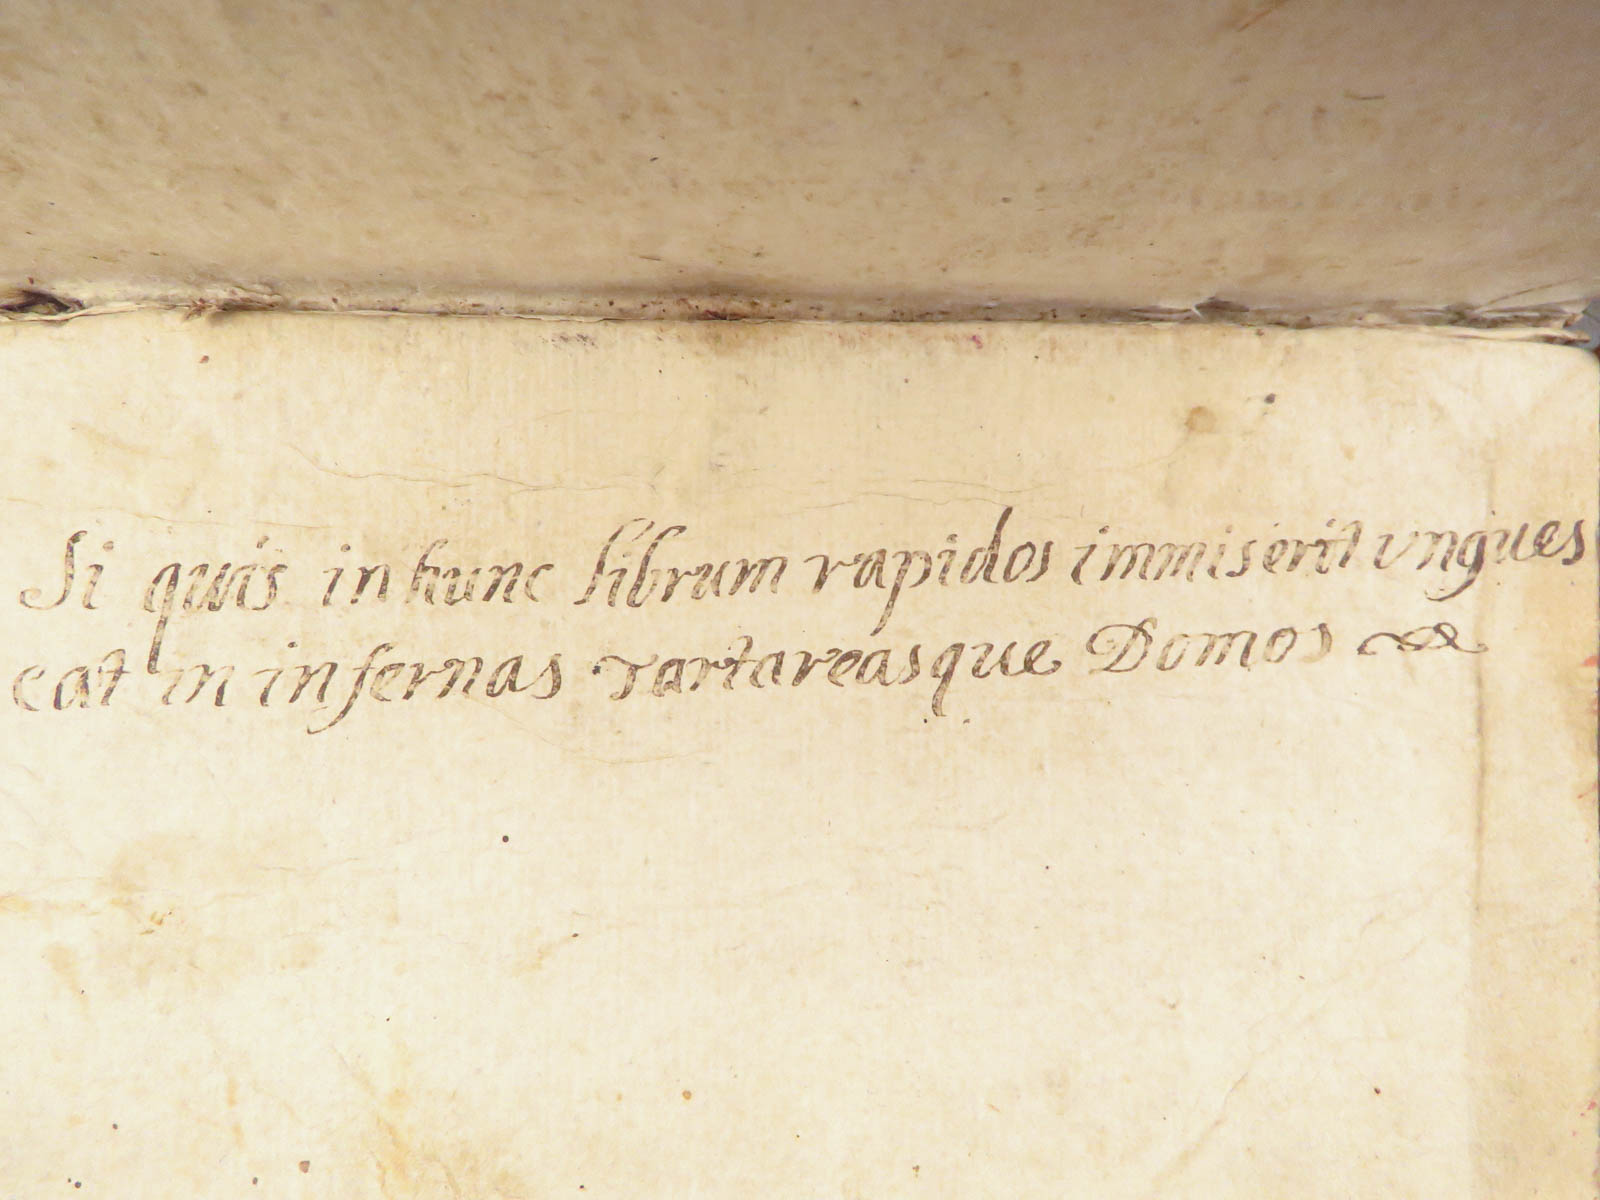 Si quis in hunc librum rapidos immiserit vngues
eat in infernas Tartareasque Domos